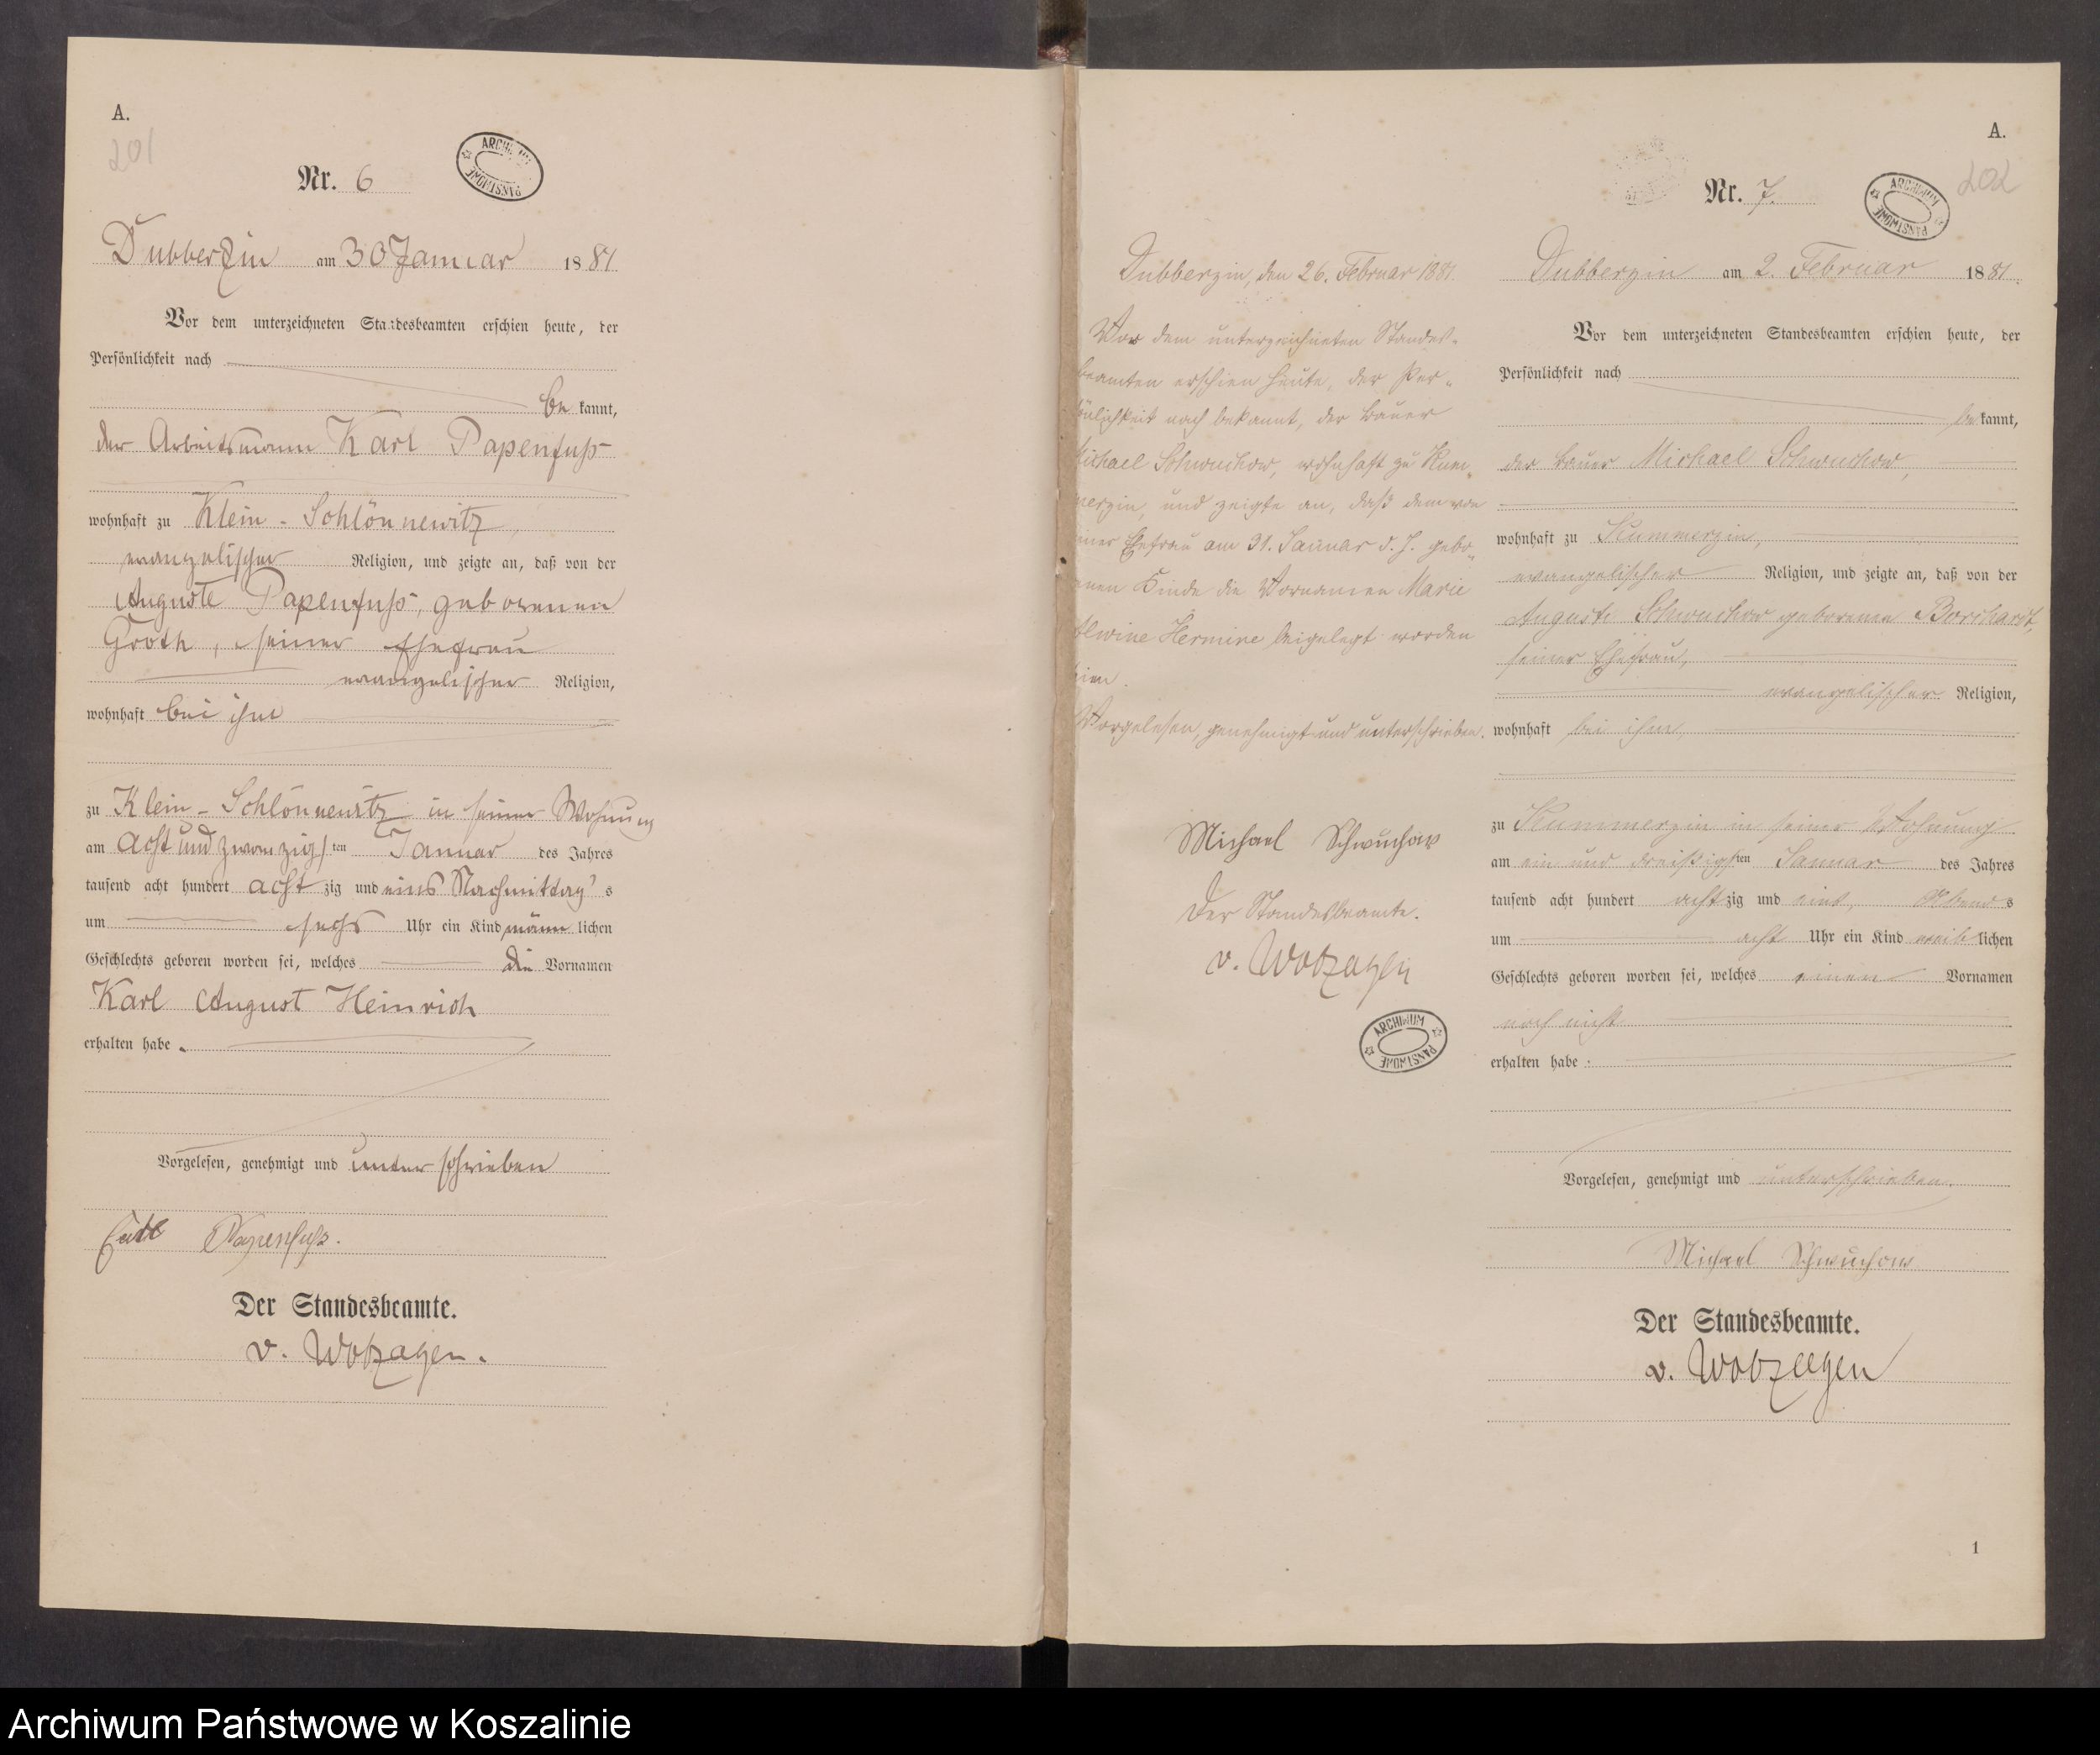 A.
201
Nr. 6
ARCHIWUM PAŃSTWOWE
Dubberzin am 30 Januar 1881
Vor dem unterzeichneten Standesbeamten erschien heute, der
Persönlichkeit nach
be kannt,
der Arbeitsmann Karl Papenfuß
wohnhaft zu Klein-Schlönnewitz,
evangelischer Religion, und zeigte an, daß von der
Auguste Papenfuß, geborenen
Groth, seiner Ehefrau
evangelischer Religion,
wohnhaft bei ihm
zu Klein-Schlönnewitz in seiner Wohnung
am acht und zwanzigsten Januar des Jahres
tausend acht hundert acht zig und eins Nachmittag's
um sechs Uhr ein Kind männ lichen
Geschlechts geboren worden sei, welches die Vornamen
Karl August Heinrich
erhalten habe.
Vorgelesen, genehmigt und unterschrieben
Carl Papenfuß.
Der Standesbeamte.
v. Wobzagen.
Dubberzin, den 26. Februar 1881.
Vor dem unterzeichneten Standes-
beamten erschien heute, der Per-
sönlichkeit nach bekannt, der Bauer
Michael Schwuchow, wohnhaft zu Kum-
merzin, und zeigte an, daß dem von
seiner Ehefrau am 31. Januar d. J. gebo-
renen Kinde die Vornamen Marie
Alwine Hermine beigelegt worden
seien.
Vorgelesen, genehmigt und unterschrieben.
Michael Schwuchow
Der Standesbeamte.
v. Wobzagen
ARCHIWUM PAŃSTWOWE
A.
202
Nr. 7.
ARCHIWUM PAŃSTWOWE
Dubberzin am 2. Februar 1881.
Vor dem unterzeichneten Standesbeamten erschien heute, der
Persönlichkeit nach
be kannt,
der Bauer Michael Schwuchow,
wohnhaft zu Kummerzin,
evangelischer Religion, und zeigte an, daß von der
Auguste Schwuchow geborene Borchardt,
seiner Ehefrau,
evangelischer Religion,
wohnhaft bei ihm,
zu Kummerzin in seiner Wohnung
am ein und dreißigsten Januar des Jahres
tausend acht hundert acht zig und eins, Abend s
um acht Uhr ein Kind weib lichen
Geschlechts geboren worden sei, welches einen Vornamen
noch nicht
erhalten habe.
Vorgelesen, genehmigt und unterschrieben.
Michael Schwuchow
Der Standesbeamte.
v. Wobzagen
1
Archiwum Państwowe w Koszalinie